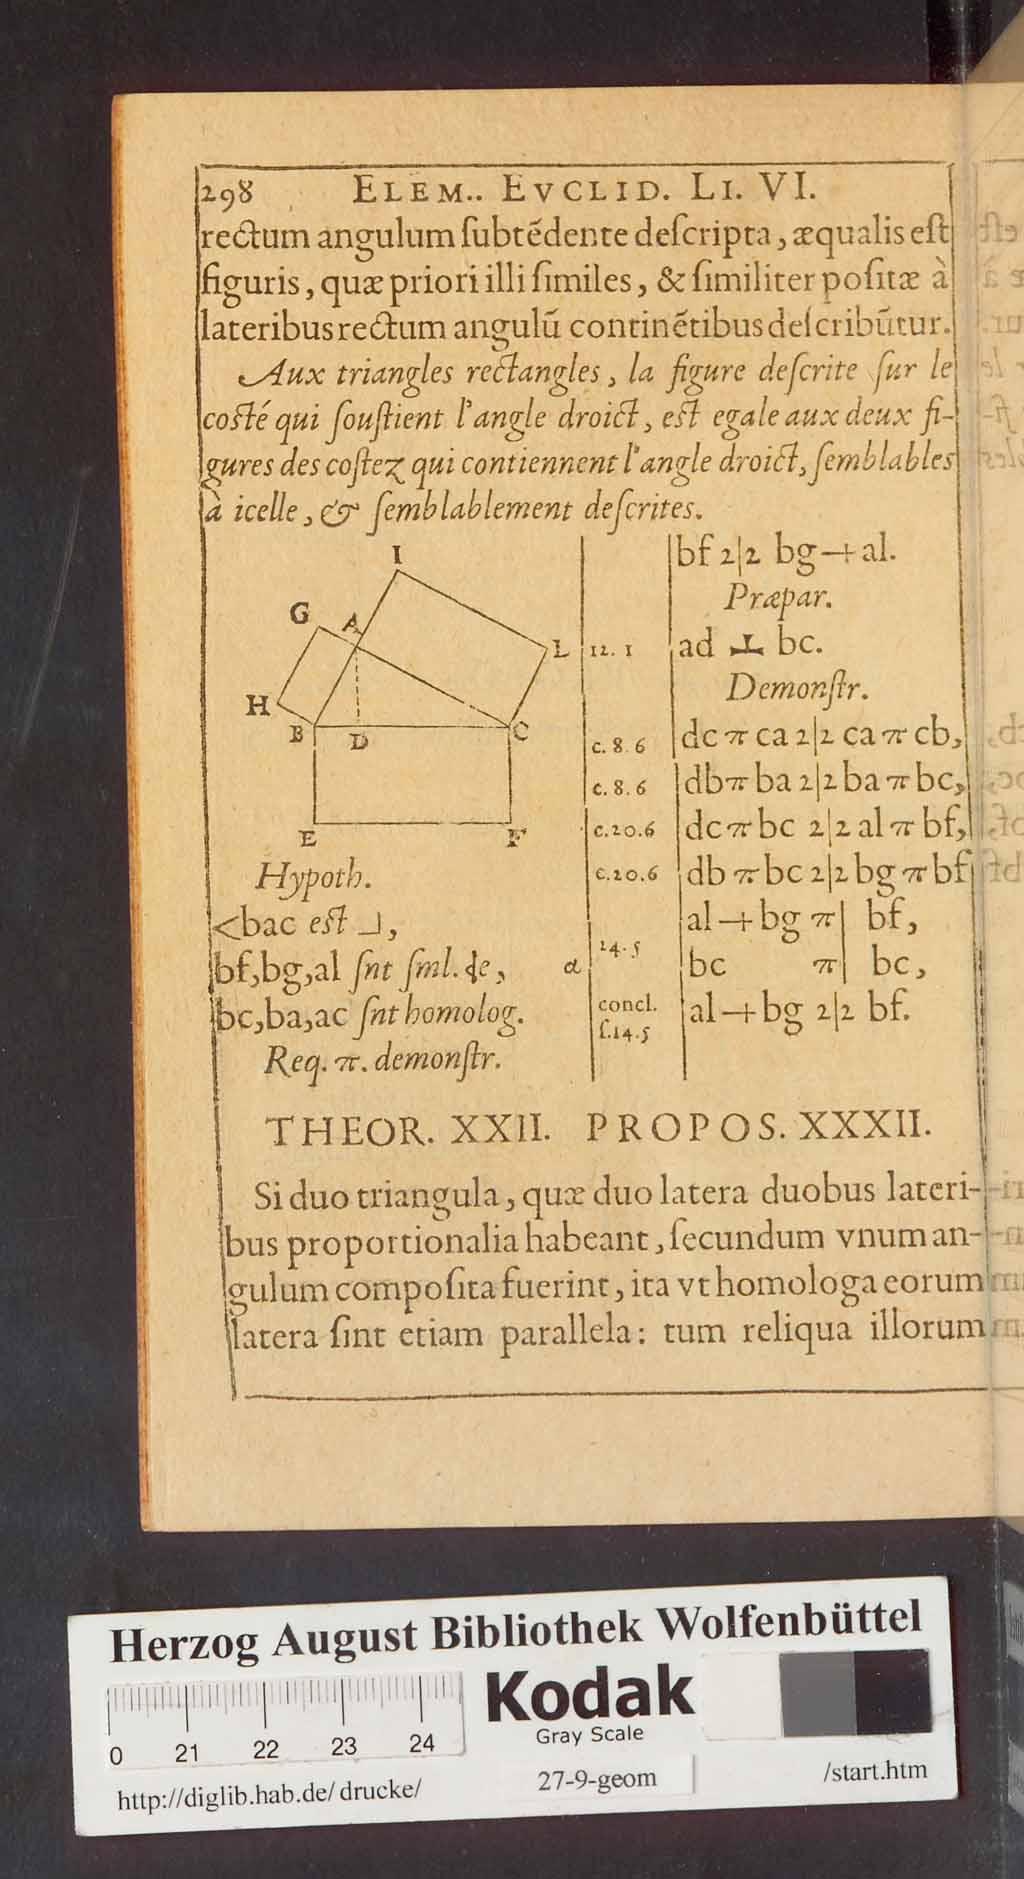 298 ELEM.. EVCLID. LI. VI.
rectum angulum ſubtẽdente deſcripta, æqualis eſt
figuris, quæ priori illi ſimiles, & ſimiliter poſitæ à
lateribus rectum angulũ continẽtibus deſcribũtur.
Aux triangles rectangles, la figure deſcrite ſur le
coſté qui ſouſtient l'angle droict, eſt egale aux deux fi-
gures des coſtez qui contiennent l'angle droict, ſemblables
à icelle, & ſemblablement deſcrites.
I
G A
L
H
B D C
E F
Hypoth.
<bac eſt ⅃,
bf,bg,al ſnt ſml. ⸠e,
bc,ba,ac ſnt homolog.
Req. π. demonſtr.
bf 2|2 bg + al.
Præpar.
12. 1 ad ⊥ bc.
Demonſtr.
c. 8. 6 dc π ca 2|2 ca π cb,
c. 8. 6 db π ba 2|2 ba π bc,
c.20.6 dc π bc 2|2 al π bf,
c.20.6 db π bc 2|2 bg π bf
al + bg π| bf,
α 24.5 bc π| bc,
concl. ſ.14.5 al + bg 2|2 bf.
THEOR. XXII. PROPOS. XXXII.
Si duo triangula, quæ duo latera duobus lateri-
bus proportionalia habeant, ſecundum vnum an-
gulum compoſita fuerint, ita vt homologa eorum
latera ſint etiam parallela: tum reliqua illorum
Herzog August Bibliothek Wolfenbüttel
Kodak
Gray Scale
0 21 22 23 24
http://diglib.hab.de/drucke/ 27-9-geom /start.htm